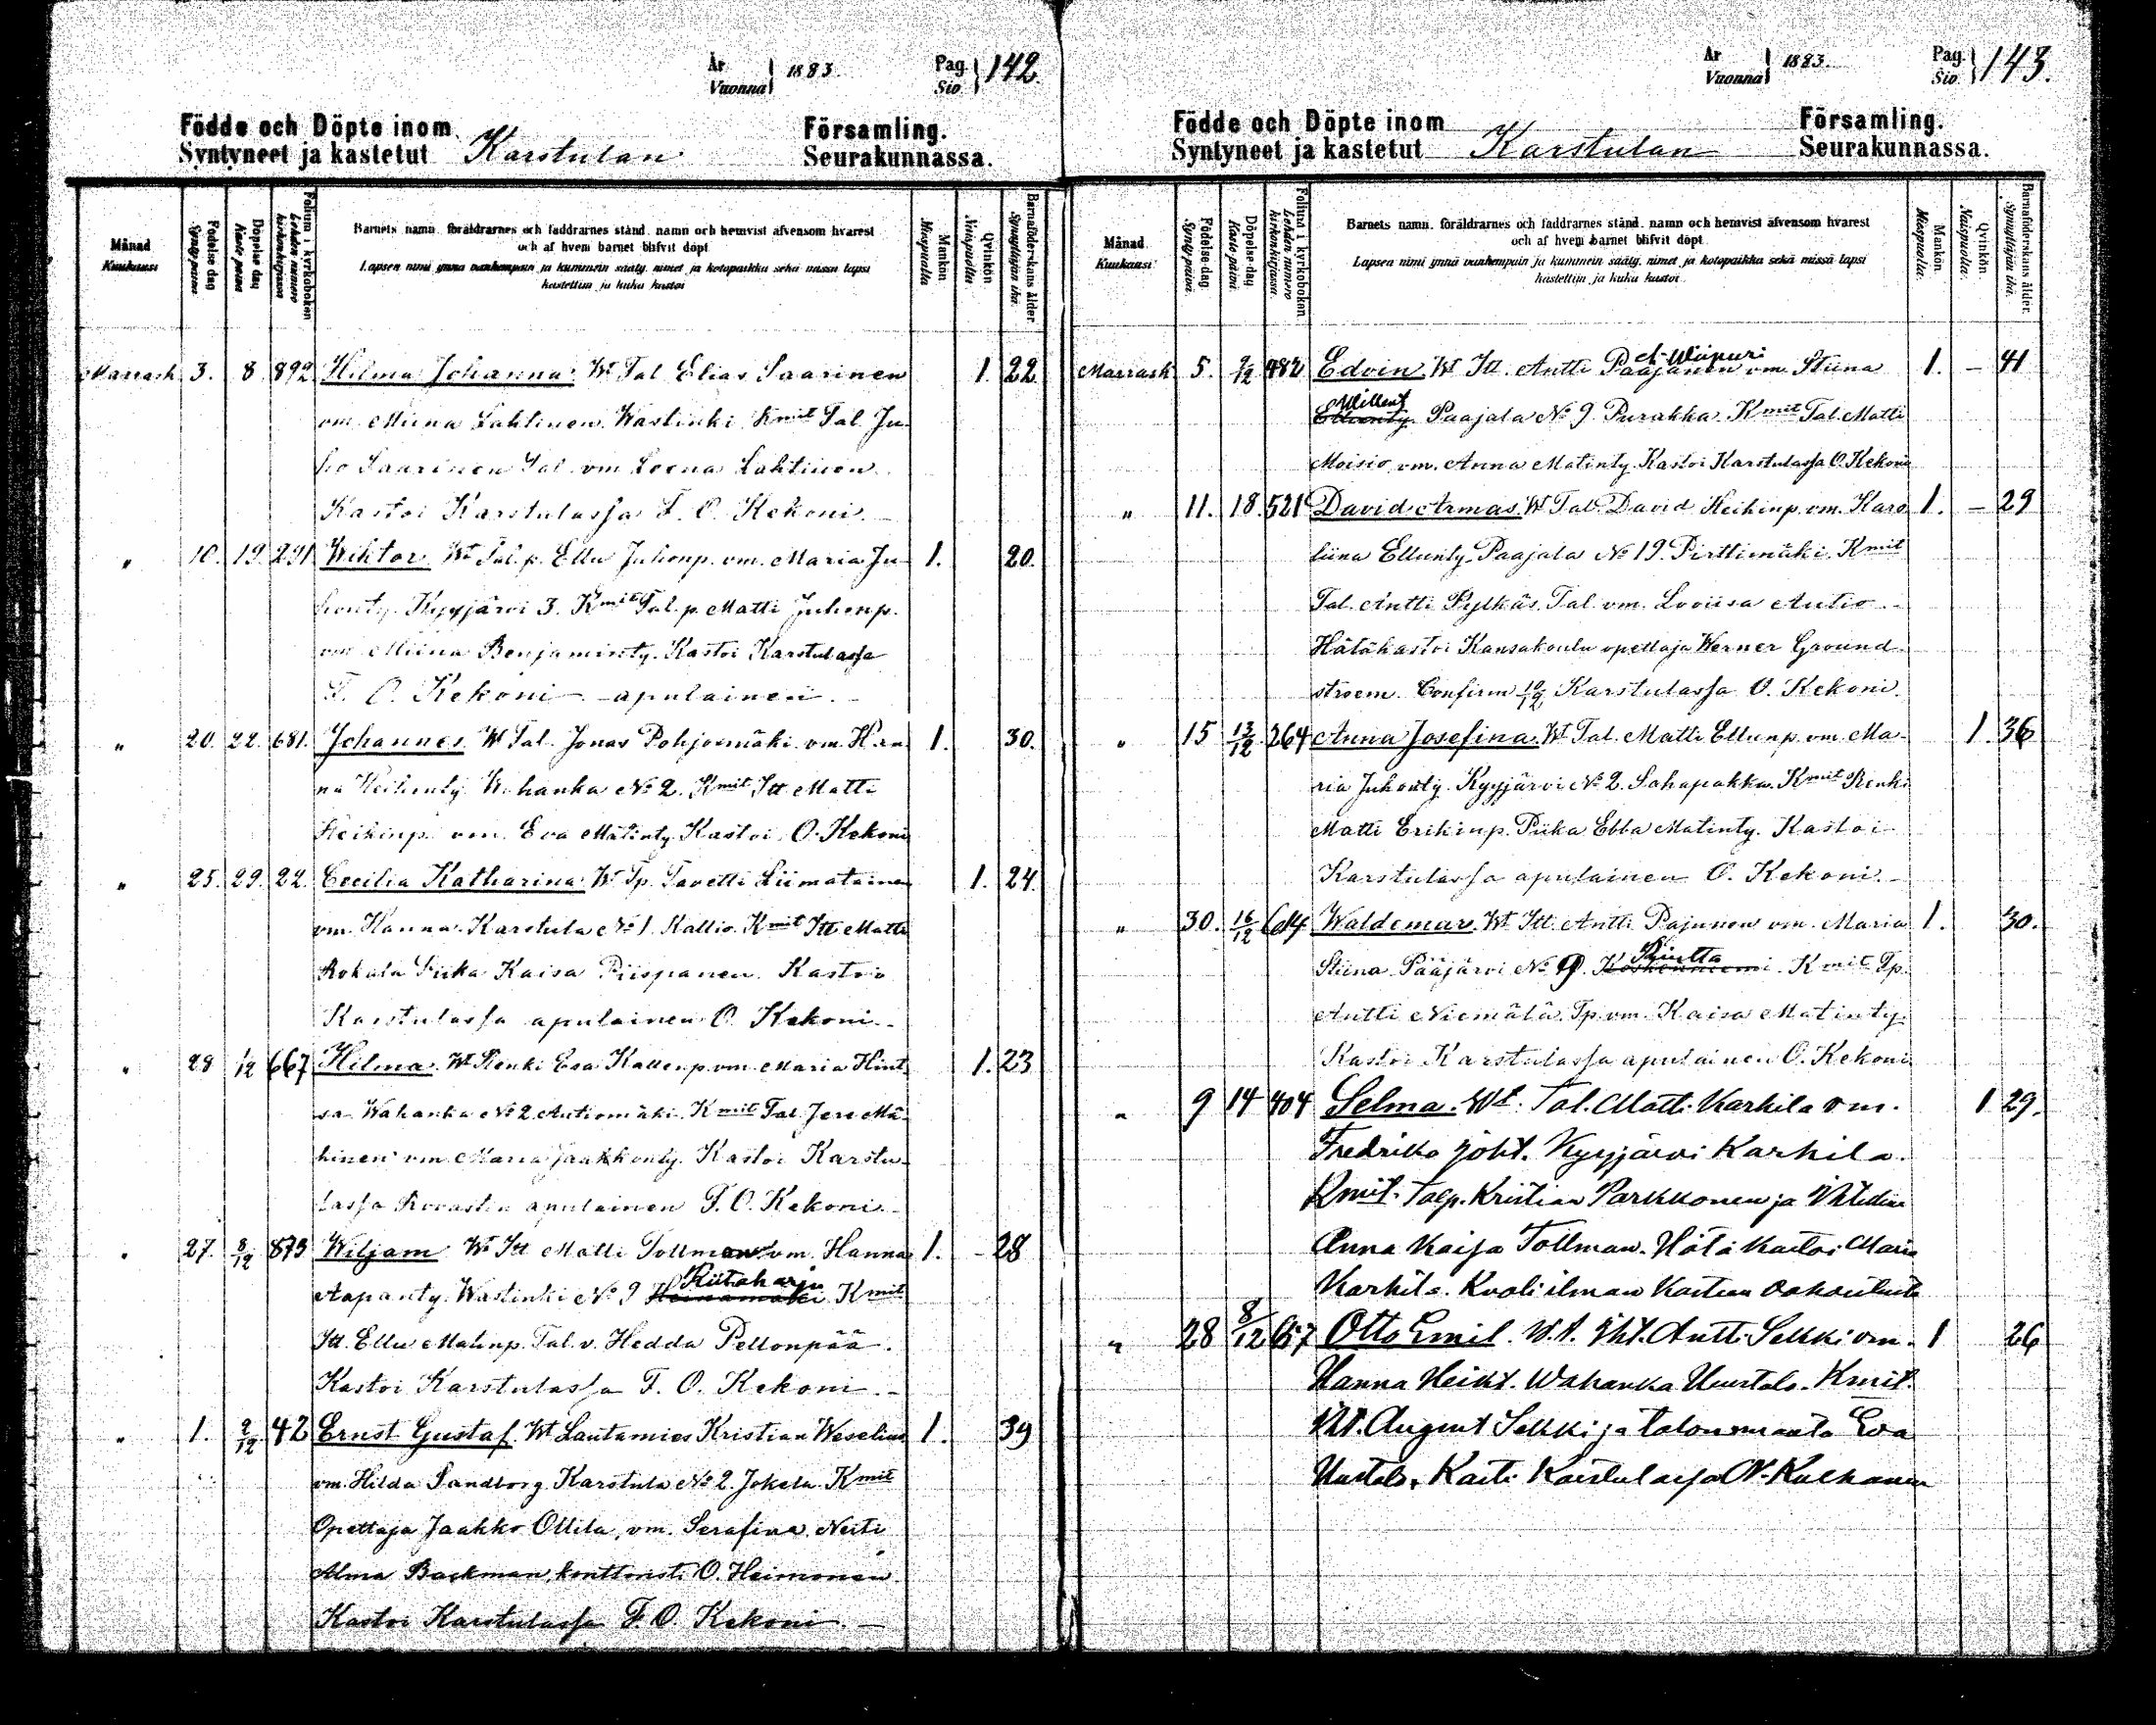 År
Vuonna } 1883.
Pag.
Sio. } 142.
Födde och Döpte inom Församling.
Syntyneet ja kastetut Karstulan Seurakunnassa.
Månad
Kuukausi
Födelse dag
Synty päivä
Döpelse dag
Kaste päivä
Folium i kyrkoboken
Lehden numero kirkonkirjassa
Barnets namn, föräldrarnes och faddrarnes stånd, namn och hemvist äfvensom hvarest
och af hvem barnet blifvit döpt
Lapsen nimi ynnä vanhempain ja kummein sääty, nimet ja kotopaikka sekä missä lapsi
kastettiin ja kuka kastoi
Mankön
Miespuolta
Qvinkön
Naispuolta
Barnaföderskans ålder
Synnyttäjän ikä.
Marrask. 3. 8 892 Hilma Johanna. Wt Tal Elias Saarinen 1. 22.
vm Miina Lahtinen. Wastinki Kmit Tal. Ju-
ho Saarinen Tal. vm Leena Lahtinen
Kastoi Karstulassa F. O. Kekoni.
" 10. 19. 291 Wiktor Wt Tal. p. Ellu Juhonp. vm. Maria Ju- 1. 20.
honty. Kyyjärvi 3. Kmit Tal. p. Matti Juhonp.
vm Miina Benjaminty. Kastoi Karstulassa
F. O. Kekoni apulainen.
" 20. 22. 681. Johannes. Wt Tal. Jonas Pohjoismäki vm. Han- 1. 30.
na Heikinty Wahanka No 2. Kmit Itt Matti
Heikinp. vm. Eva Matinty. Kastoi O. Kekoni
" 25. 29. 22. Cecilia Katharina Wt Tp. Tavetti Liimatainen 1. 24.
vm. Hanna. Karstula No 1. Kallio. Kmit Itt Matti
Rokala Piika Kaisa Piispanen. Kastoi
Karstulassa apulainen O. Kekoni.
" 28 1/12 667 Hilma. Wt Renki Esa Kallenp. vm. Maria Hint- 1. 23
sa Wahanka No 2 Autiomäki. Kmit Tal. Jere Mä-
hinen vm. Maria Jaakkonty. Kastoi Karstu-
lassa Rovastin apulainen F. O. Kekoni.
" 27. 8/12 873 Wiljam Wt Itt Matti Tollman vm. Hanna 1. - 28
Riitaharju
Aapanty. Wastinki No 9 Heinämäki. Kmit
Itt. Ellu Matinp. Tal. v. Hedda Pellonpää.
Kastoi Karstulassa F. O. Kekoni.
" 1. 2/12. 42 Ernst Gustaf. Wt Lautamies Kristian Weselius 1. 39
vm. Hilda Sandborg Karstula No 2. Jokela Kmit
Opettaja Jaakko Ollila, vm. Serafina, Neiti
Alma Backman, konttoristi O. Heimonen.
Kastoi Karstulassa F. O. Kekoni.
År
Vuonna } 1883.
Pag.
Sio. } 143.
Födde och Döpte inom Församling.
Syntyneet ja kastetut Karstulan Seurakunnassa.
Månad
Kuukausi
Födelse-dag
Synty päivä.
Döpelse-dag
Kaste-päivä
Folium i kyrkoboken
Lehden numero kirkonkirjassa.
Barnets namn, föräldrarnes och faddrarnes stånd, namn och hemvist äfvensom hvarest
och af hvem barnet blifvit döpt.
Lapsen nimi ynnä vanhempain ja kummein sääty, nimet ja kotopaikka sekä missä lapsi
kastettiin ja kuka kastoi.
Mankön.
Miespuolta.
Qvinkön
Naispuolta.
Barnaföderskans ålder.
Synnyttäjän ikä.
Wiipuri
Marrask 5. 2/12 482 Edvin Wt Itt. Antti Paajanen vm. Stiina 1. - 41
Paajala No 9. Purakka. Kmit Tal. Matti
Moisio, vm. Anna Matinty. Kastoi Karstulassa O. Kekoni
" 11. 18. 521 David Armas. Wt Tal. David Heikinp. vm. Karo- 1. - 29
liina Ellunty. Paajala No 19. Pirttimäki. Kmit
Tal. Antti Pylkäs. Tal. vm. Loviisa Autio.
Hätäkastoi Kansakoulu opettaja Werner Ground-
stroem. Confirm 10/12 Karstulassa O. Kekoni.
" 15 13/12 264 Anna Josefina. Wt Tal. Matti Ellunp. vm. Ma- 1. 36
ria Juhonty. Kyyjärvi No 2. Sahapakka. Kmit Renki
Matti Erikinp. Piika Ebba Matinty. Kastoi
Karstulassa apulainen O. Kekoni.
" 30. 16/12 614 Waldemar. Wt Itt. Antti Pajunen vm. Maria 1. 30.
Stiina. Pääjärvi No 9. Koskenniemi. Kmit Tp.
Antti Niemälä. Tp. vm. Kaisa Matinty.
Kastoi Karstulassa apulainen O. Kekoni
" 9 14 404 Selma. Wt. Tal. Matti Karhila vm. 1 29.
Fredrika Joht. Kyyjärvi Karhila.
Kmit. Talp. Kristian Parkkonen ja
Anna Kaisa Tollman. Hätä kastoi Maria
Karhila. Kuoli ilman
" 28 8/12 657 Otto Emil. W.t. Itt. Antti Selkki vm. 1 26
Hanna Heikt. Wahanka Uusitalo. Kmit.
Itt. August Selkki ja talonemäntä Eva
Uusitalo. Kasti Karstulassa